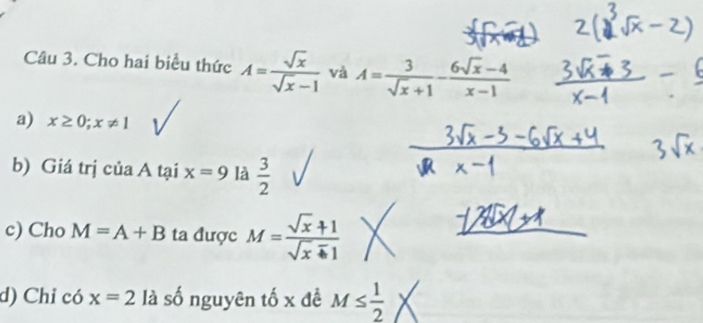 2(3√x − 2)
Câu 3. Cho hai biểu thức A = √x / (√x − 1) và A = 3 / (√x + 1) − (6√x − 4) / (x − 1)
(3√x − 3) / (x − 1) −
a) x ≥ 0; x ≠ 1
(3√x − 3 − 6√x + 4) / (x − 1)
3√x
b) Giá trị của A tại x = 9 là 3/2
c) Cho M = A + B ta được M = (√x + 1) / (√x − 1)
d) Chỉ có x = 2 là số nguyên tố x để M ≤ 1/2